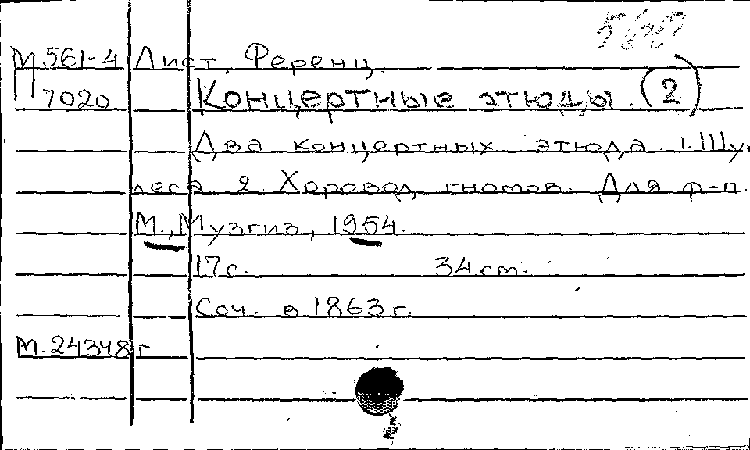 М.561-4 Лист, Ференц.
7020 Концертные этюды. (2)
Два концертных этюда. 1. Шум
леса 2. Хоровод гномов. Для ф-п.
М., Музгиз, 1954.
17 с. 34 см.
Соч. в 1863 г.
М. 24348 г